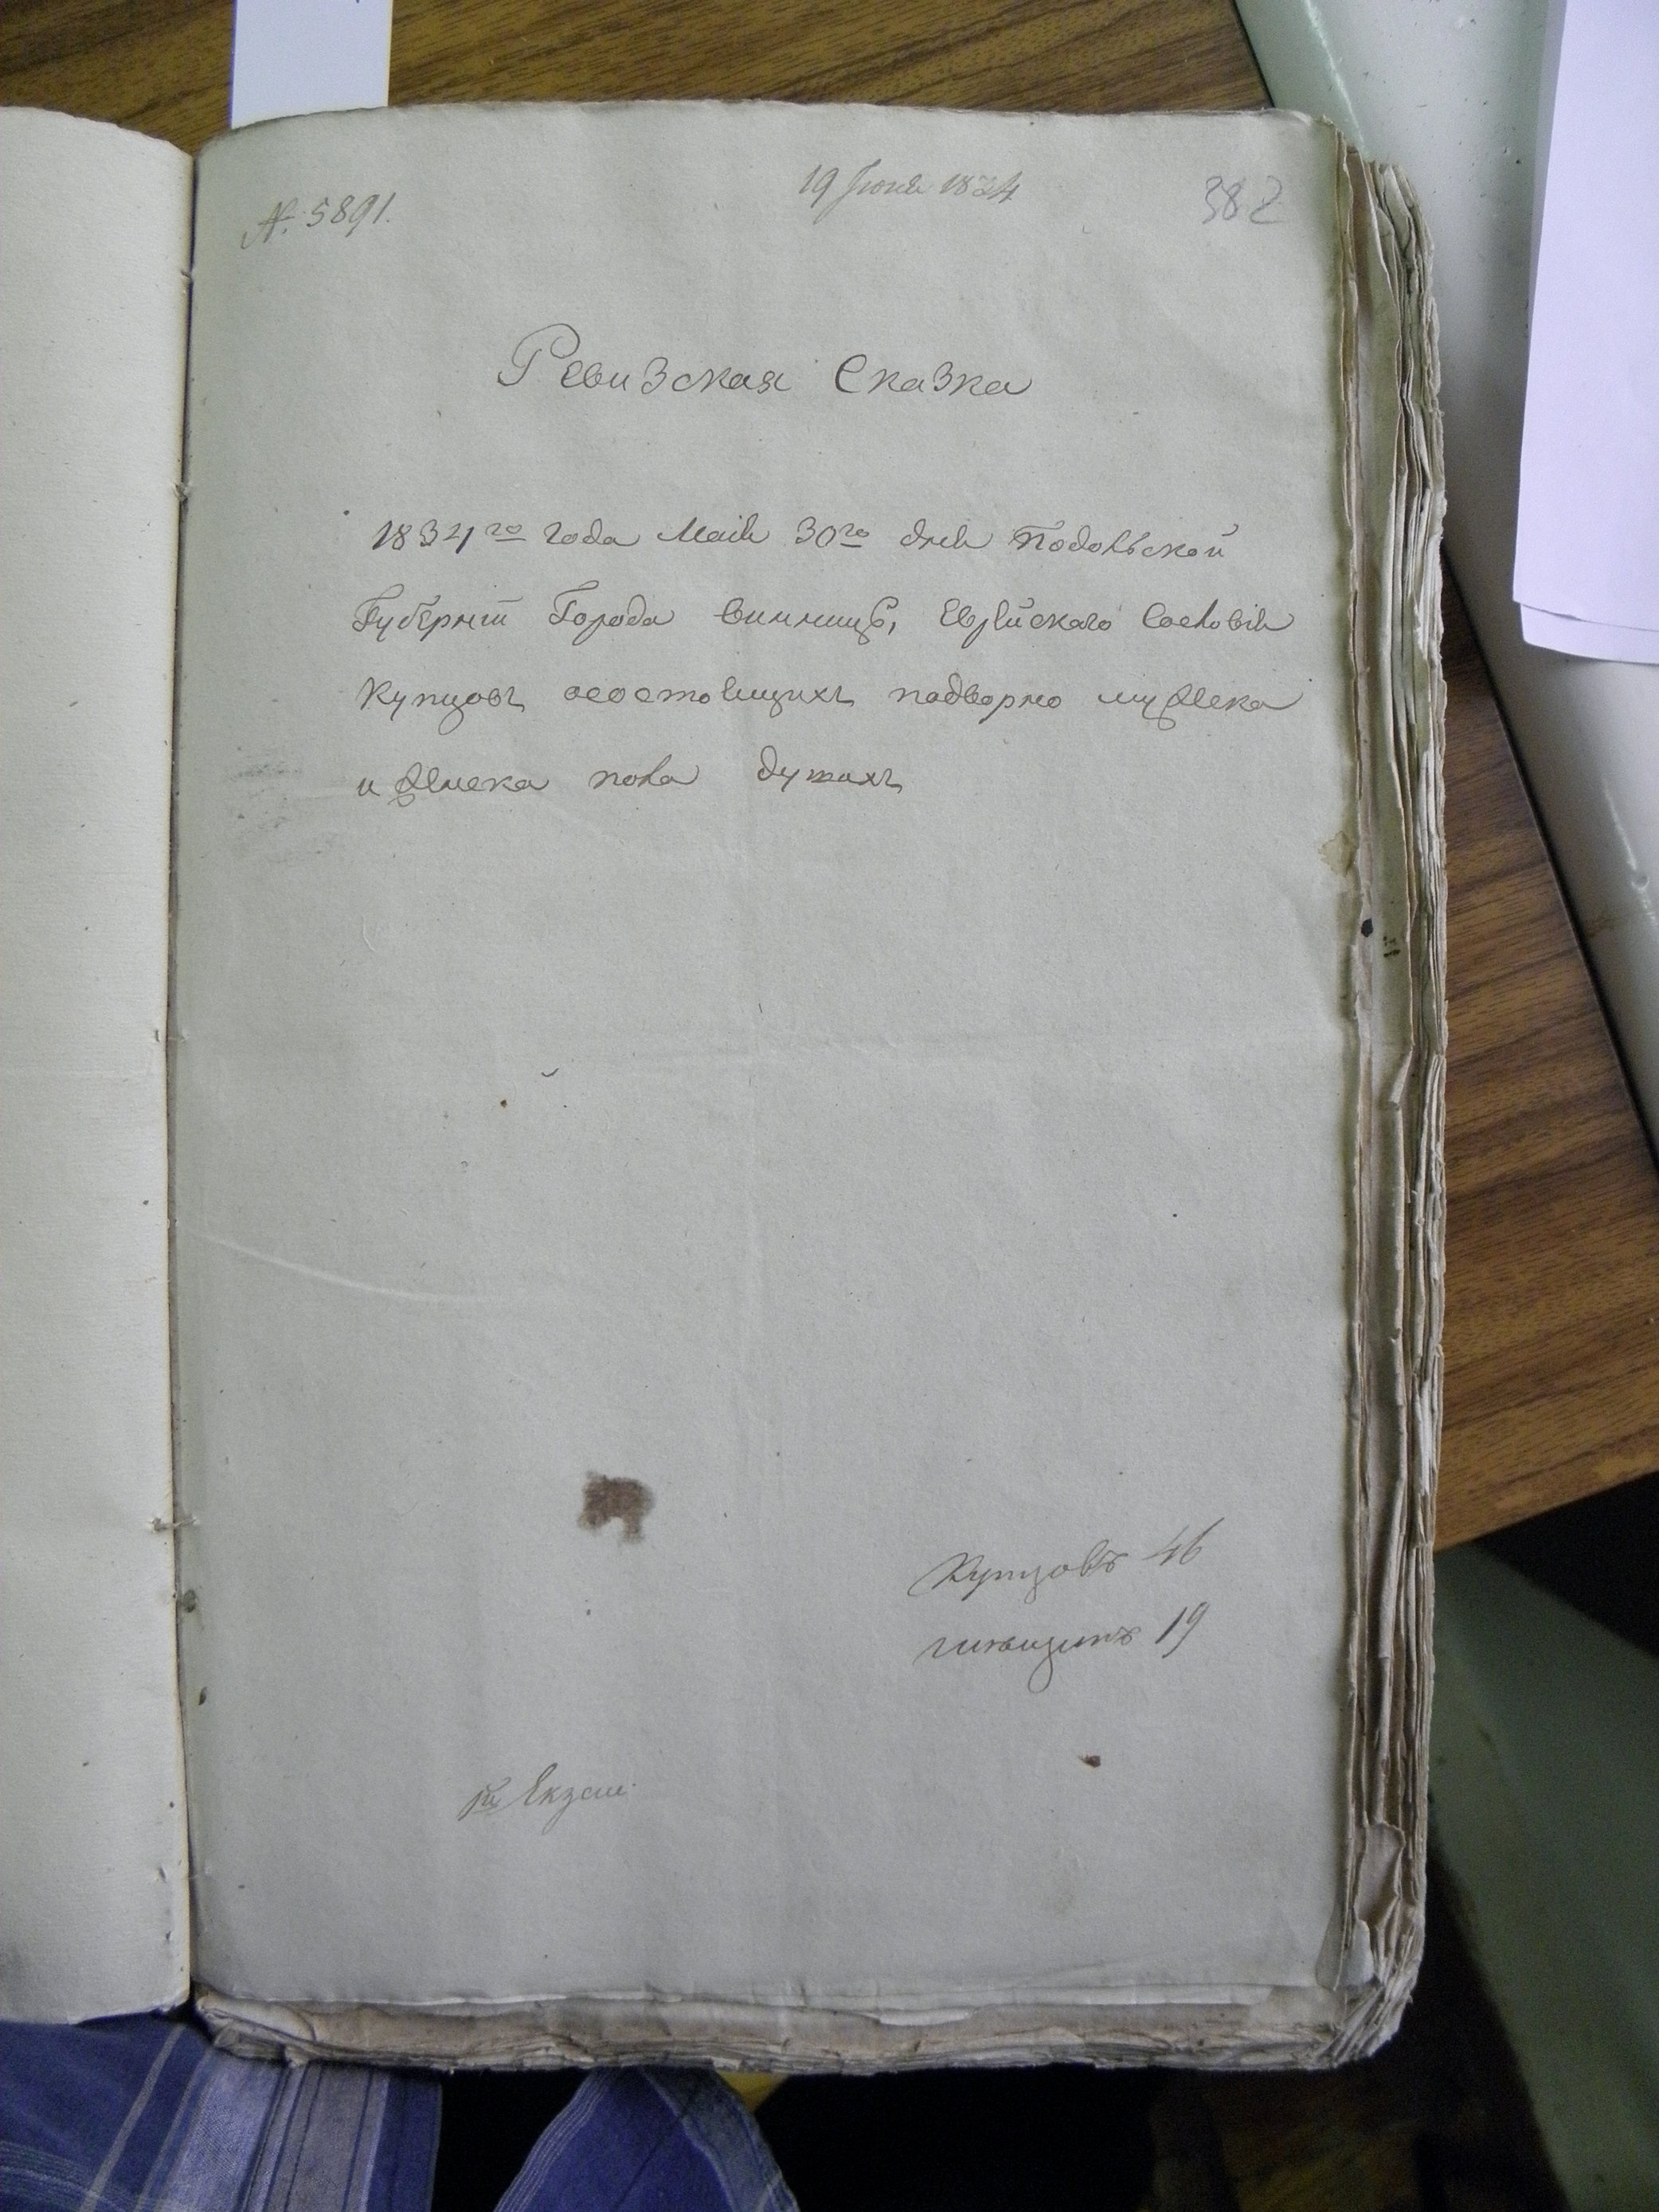 № 5891.
19 Июня 1834
382
Ревизская Сказка
1834го года Маія 30го дня Подольской
Губерніи Города Винницы, Еврейскаго Сословія
Купцовъ осостоящихъ подворно мужеска
и женска пола душахъ
Купцовъ 46
19
Екзем.